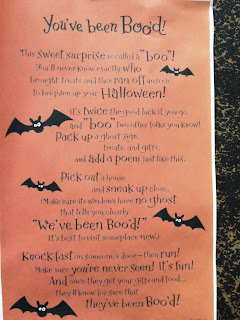 You've been Boo'd!
This sweet surprise is called a "boo"!
You'll never know exactly who
brought treats and then ran off unseen
to brighten up your Halloween!
It's twice the good luck if you go
and "boo" two other folks you know!
Pack up a ghost sign,
treats, and gifts,
and add a poem just like this.
Pick out a house
and sneak up close,
(Make sure its windows have no ghost
that tells you clearly
"We've been Boo'd!"
It's best to visit someplace new.)
Knock fast on someone's door—then run!
Make sure you're never seen! It's fun!
And once they get your gifts and food...
they'll know for sure that
they've been Boo'd!